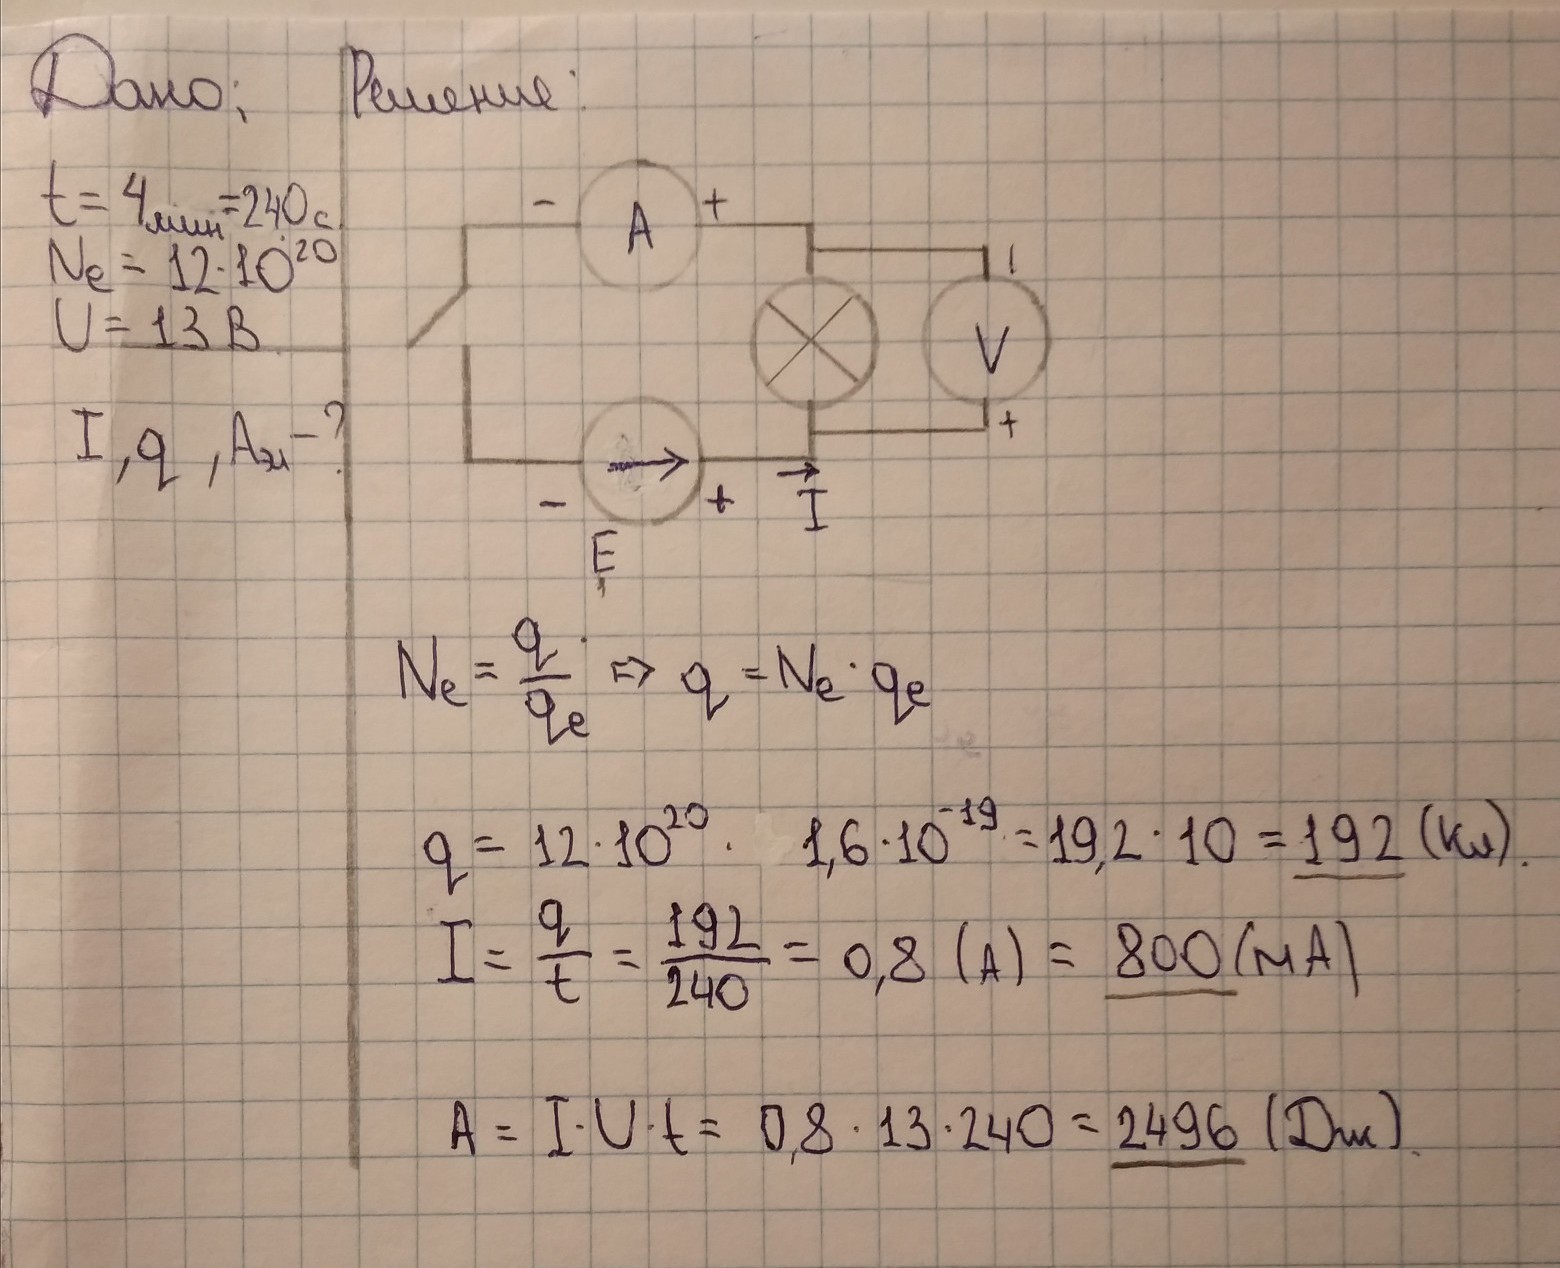 Дано; Решение:
t = 4 мин = 240 с
Ne = 12·10²⁰
U = 13 В
I, q, Aэл - ?
- A +
V
+
- +
I
E
Ne = q/qe ⇒ q = Ne · qe
q = 12·10²⁰ · 1,6·10⁻¹⁹ = 19,2·10 = 192 (Кл).
I = q/t = 192/240 = 0,8 (А) = 800 (мА)
A = I·U·t = 0,8·13·240 = 2496 (Дж).